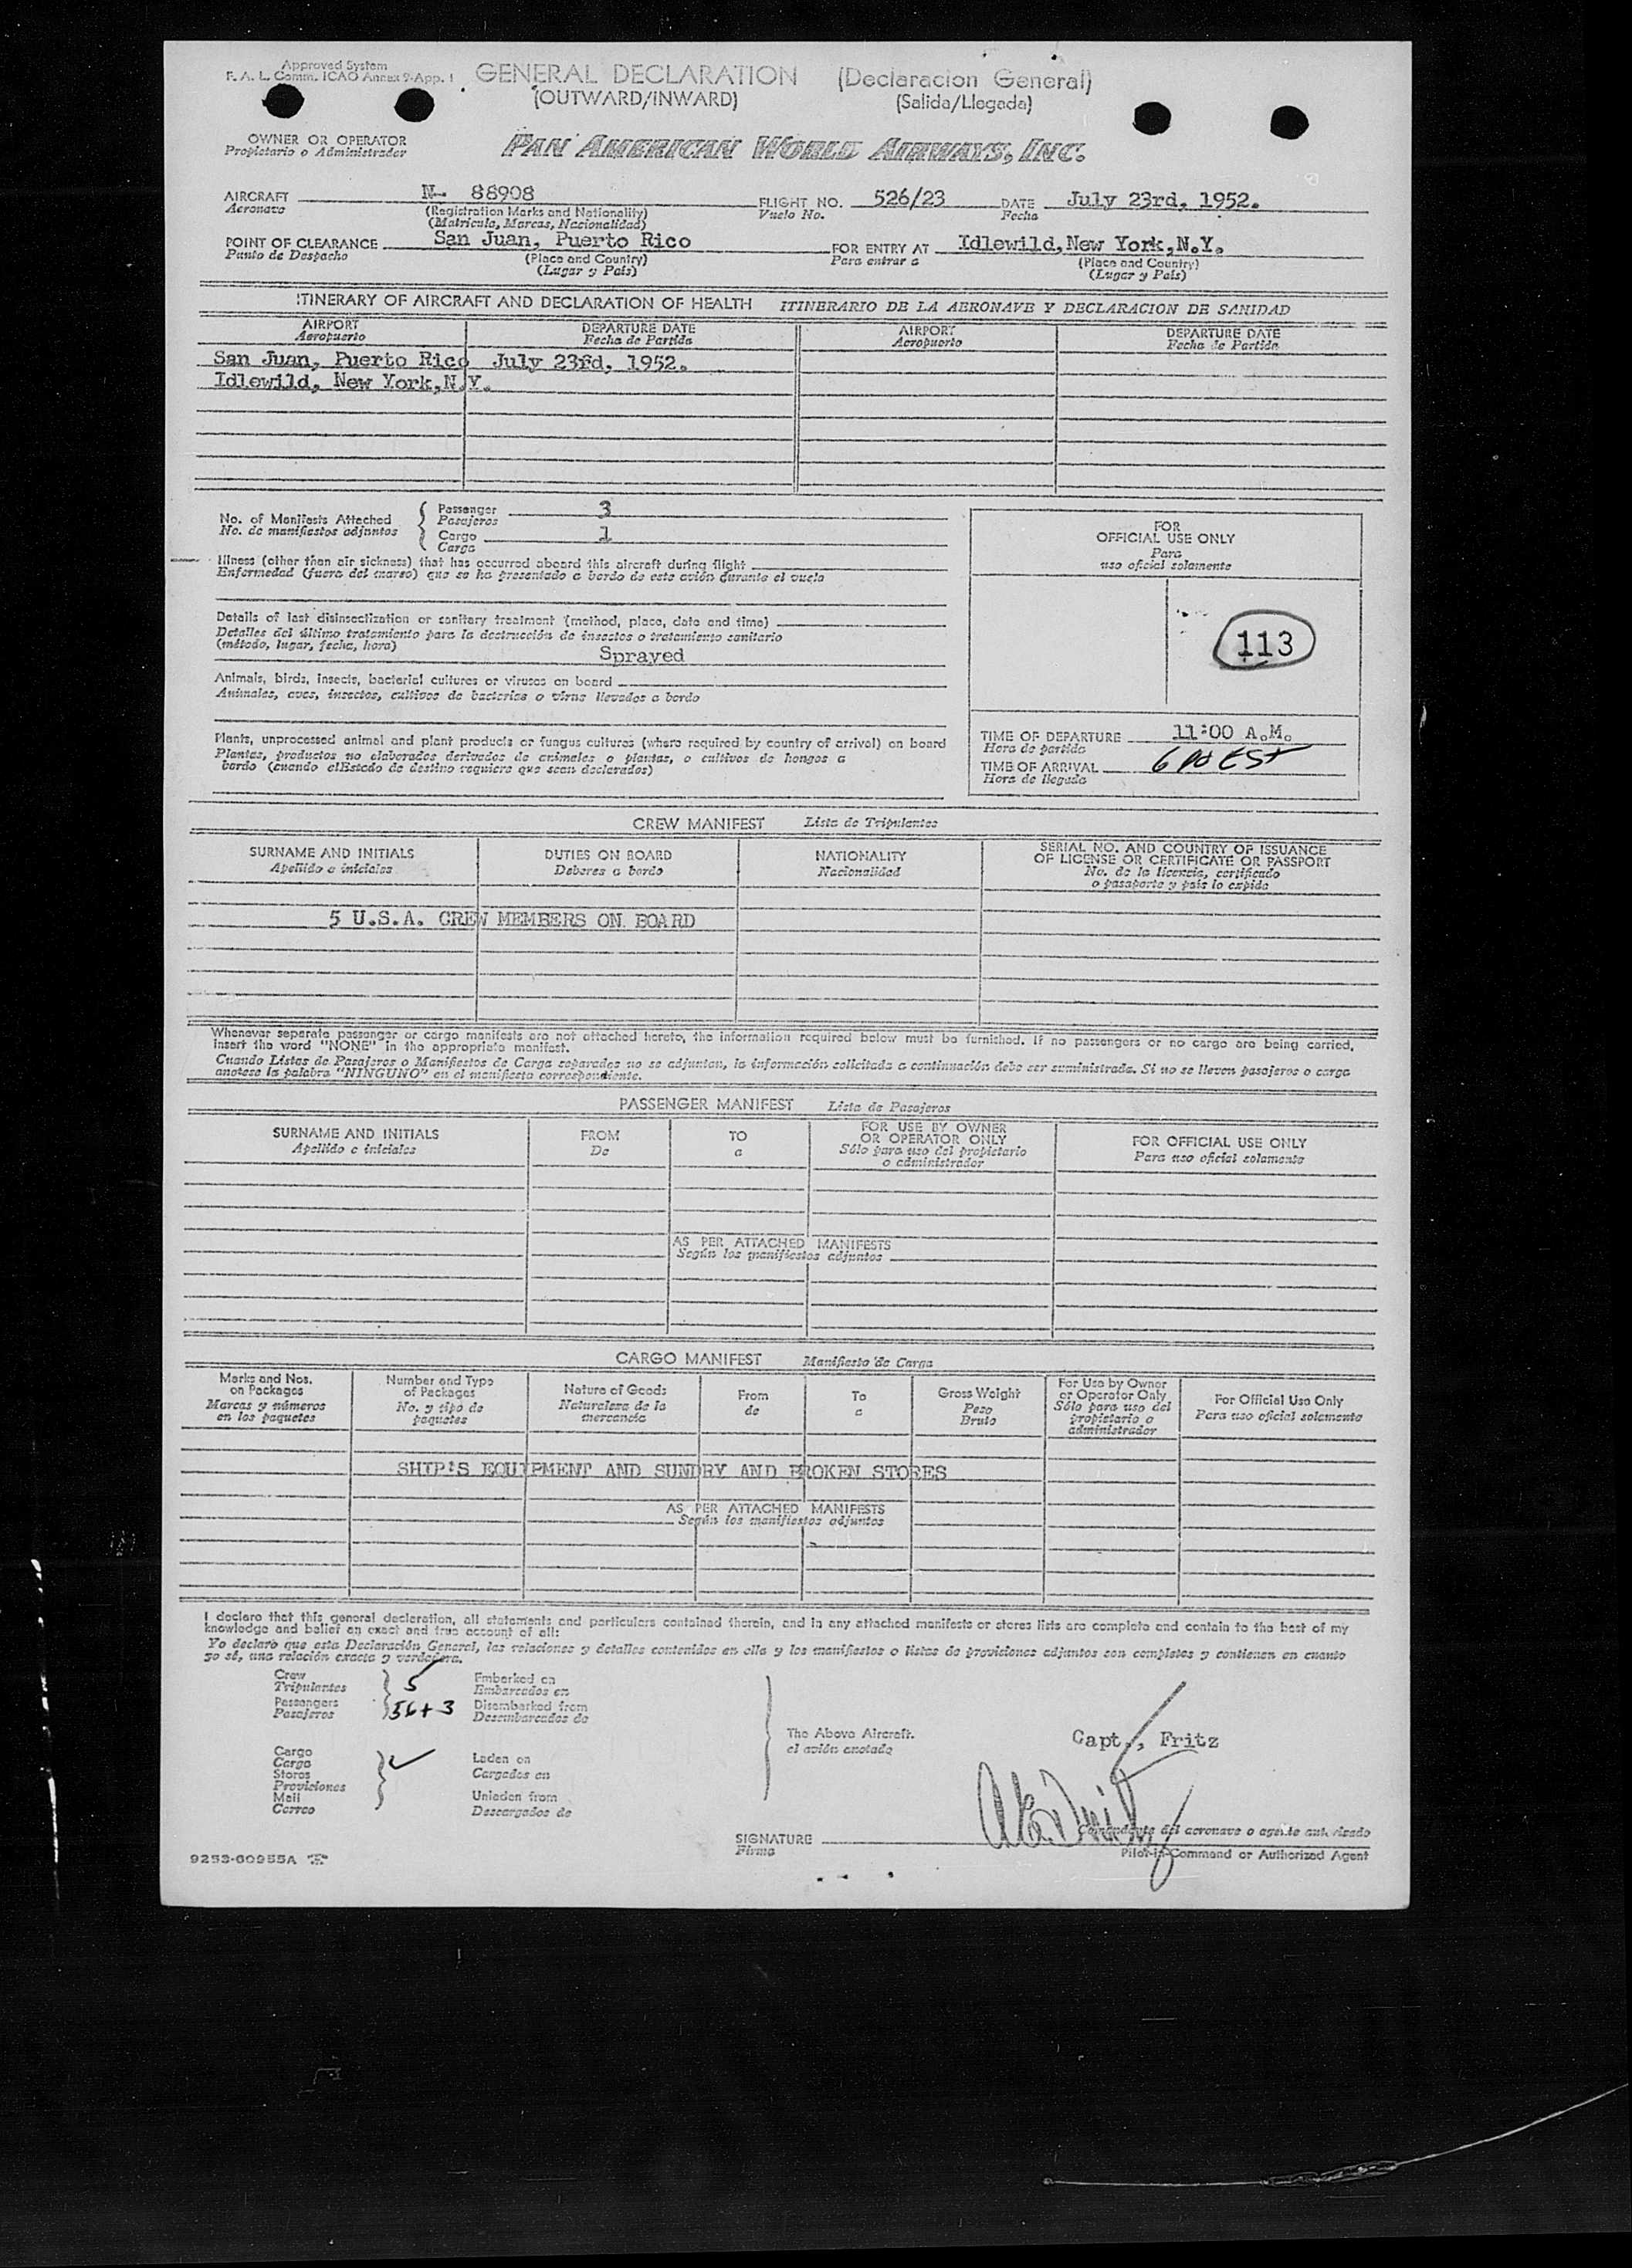 Approved System
F. A. L. Comm. ICAO Annex 9-App. 1
GENERAL DECLARATION (Declaracion General)
(OUTWARD/INWARD) (Salida/Llegada)
OWNER OR OPERATOR
Propietario o Administrador
PAN AMERICAN WORLD AIRWAYS, INC.
AIRCRAFT N- 88908 FLIGHT NO. 526/23 DATE July 23rd, 1952.
Aeronave (Registration Marks and Nationality) Vuelo No. Fecha
(Matricula, Marcas, Nacionalidad)
POINT OF CLEARANCE San Juan, Puerto Rico FOR ENTRY AT Idlewild,New York,N.Y.
Punto de Despacho (Place and Country) Para entrar a (Place and Country)
(Lugar y Pais) (Lugar y Pais)
ITINERARY OF AIRCRAFT AND DECLARATION OF HEALTH ITINERARIO DE LA AERONAVE Y DECLARACION DE SANIDAD
AIRPORT DEPARTURE DATE AIRPORT DEPARTURE DATE
Aeropuerto Fecha de Partida Aeropuerto Fecha de Partida
San Juan, Puerto Rico July 23rd, 1952.
Idlewild, New York,N.Y.
No. of Manifests Attached
No. de manifiestos adjuntos
Passenger 3
Pasajeros
Cargo 1
Carga
Illness (other than air sickness) that has occurred aboard this aircraft during flight
Enfermedad (fuera del mareo) que se ha presentado a bordo de este avión durante el vuelo
Details of last disinsectization or sanitary treatment (method, place, date and time)
Detalles del último tratamiento para la destrucción de insectos o tratamiento sanitario
(método, lugar, fecha, hora)
Sprayed
Animals, birds, insects, bacterial cultures or viruses on board
Animales, aves, insectos, cultivos de bacterias o virus llevados a bordo
Plants, unprocessed animal and plant products or fungus cultures (where required by country of arrival) on board
Plantas, productos no elaborados derivados de animales o plantas, o cultivos de hongos a
bordo (cuando elEstado de destino requiera que sean declarados)
FOR
OFFICIAL USE ONLY
Para
uso oficial solamente
113
TIME OF DEPARTURE 11:00 A.M.
Hora de partida
TIME OF ARRIVAL EST
Hora de llegada
CREW MANIFEST Lista de Tripulantes
SURNAME AND INITIALS DUTIES ON BOARD NATIONALITY SERIAL NO. AND COUNTRY OF ISSUANCE
OF LICENSE OR CERTIFICATE OR PASSPORT
Apellido e iniciales Deberes a bordo Nacionalidad No. de la licencia, certificado
o pasaporte y pais lo expide
5 U.S.A. CREW MEMBERS ON BOARD
Whenever separate passenger or cargo manifests are not attached hereto, the information required below must be furnished. If no passengers or no cargo are being carried,
insert the word "NONE" in the appropriate manifest.
Cuando Listas de Pasajeros o Manifiestos de Carga separados no se adjuntan, la información solicitada a continuación debe ser suministrada. Si no se lleven pasajeros o carga
anotese la palabra "NINGUNO" en el manifiesto correspondiente.
PASSENGER MANIFEST Lista de Pasajeros
SURNAME AND INITIALS FROM TO FOR USE BY OWNER
OR OPERATOR ONLY FOR OFFICIAL USE ONLY
Apellido e iniciales De a Sólo para uso del propietario
o administrador Para uso oficial solamente
AS PER ATTACHED MANIFESTS
Según los manifiestos adjuntos
CARGO MANIFEST Manifiesto de Carga
Marks and Nos.
on Packages
Marcas y números
en los paquetes
Number and Type
of Packages
No. y tipo de
paquetes
Nature of Goods
Naturaleza de la
mercancía
From
de
To
a
Gross Weight
Peso
Bruto
For Use by Owner
or Operator Only
Sólo para uso del
propietario o
administrador
For Official Use Only
Para uso oficial solamente
SHIP'S EQUIPMENT AND SUNDRY AND BROKEN STORES
AS PER ATTACHED MANIFESTS
Según los manifiestos adjuntos
I declare that this general declaration, all statements and particulars contained therein, and in any attached manifests or stores lists are complete and contain to the best of my
knowledge and belief an exact and true account of all:
Yo declaró que esta Declaración General, las relaciones y detalles contenidos en ella y los manifiestos o listas de provisiones adjuntos son completos y contienen en cuanto
yo sé, una relación exacta y verdadera.
Crew 5 Embarked on
Tripulantes Embarcados en
Passengers 56+3 Disembarked from
Pasajeros Desembarcados de
Cargo Laden on
Carga Cargados en
Stores
Provisiones
Mail Unladen from
Correo Descargados de
The Above Aircraft.
el avión anotado
Capt., Fritz
SIGNATURE
Firma
Comandante del aeronave o agente autorizado
Pilot-in-Command or Authorized Agent
9253-60955A